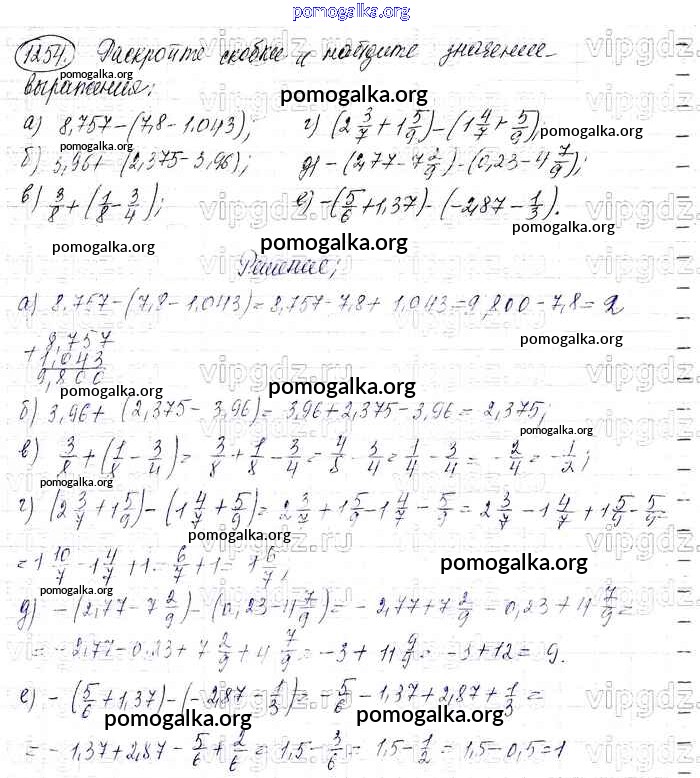 pomogalka.org
1254. Раскройте скобки и найдите значение
выражения:
а) 8,757 - (7,8 - 1,043); г) (2 3/7 + 1 5/9) - (1 4/7 + 5/9);
б) 3,96 + (2,375 - 3,96); д) - (2,77 - 7 2/9) - (0,23 - 4 7/9);
в) 3/8 + (1/8 - 3/4); е) - (5/6 + 1,37) - (-2,87 - 1/3).
Решение;
а) 8,757 - (7,8 - 1,043) = 8,757 - 7,8 + 1,043 = 9,800 - 7,8 = 2
8,757
+ 1,043
9,800
б) 3,96 + (2,375 - 3,96) = 3,96 + 2,375 - 3,96 = 2,375;
в) 3/8 + (1/8 - 3/4) = 3/8 + 1/8 - 3/4 = 4/8 - 3/4 = 1/4 - 3/4 = - 2/4 = - 1/2;
г) (2 3/7 + 1 5/9) - (1 4/7 + 5/9) = 2 3/7 + 1 5/9 - 1 4/7 - 5/9 = 2 3/7 - 1 4/7 + 1 5/9 - 5/9 =
= 1 10/7 - 1 4/7 + 1 = 6/7 + 1 = 1 6/7;
д) - (2,77 - 7 2/9) - (0,23 - 4 7/9) = - 2,77 + 7 2/9 - 0,23 + 4 7/9 =
= - 2,77 - 0,23 + 7 2/9 + 4 7/9 = -3 + 11 9/9 = -3 + 12 = 9.
е) - (5/6 + 1,37) - (-2,87 - 1/3) = - 5/6 - 1,37 + 2,87 + 1/3 =
= - 1,37 + 2,87 - 5/6 + 2/6 = 1,5 - 3/6 = 1,5 - 1/2 = 1,5 - 0,5 = 1